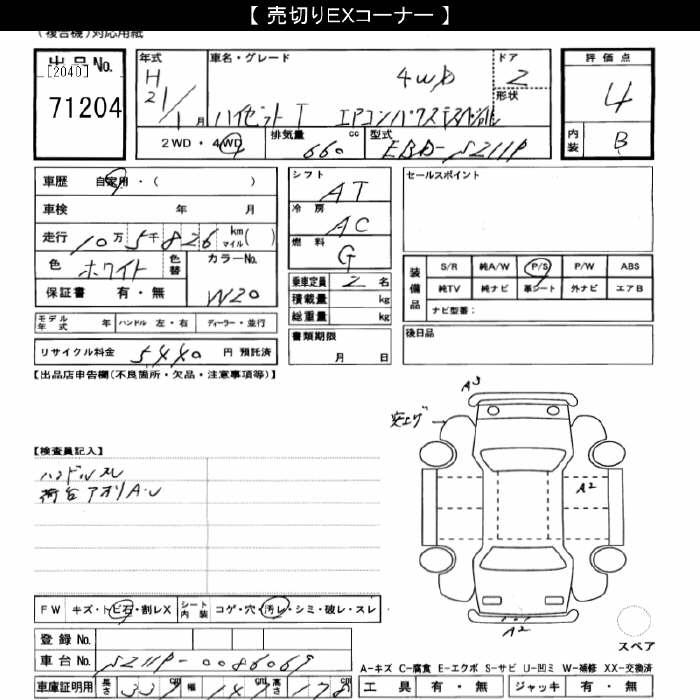 【 売切りEXコーナー 】
(複合機)対応用紙
出品 No. [2040] 71204
年式 H 21/1 月
車名・グレード 4WD
ハイゼット T エアコンパワステスペシャル
ドア 2
形状
評価点 4
内装 B
2WD ・ 4WD 排気量 660 cc 型式 EBD-S211P
車歴 自家用 ・ ( )
車検 年 月
走行 10万 5千 826 km マイル ( )
色 ホワイト 色替 カラーNo. W20
保証書 有 ・ 無
モデル年式 年 ハンドル 左 ・ 右 ディーラー ・ 並行
リサイクル料金 5440 円 預託済
シフト AT
冷房 AC
燃料 G
乗車定員 2 名
積載量 kg
総重量 kg
書類期限 月 日
セールスポイント
装備品 S/R 純A/W P/S P/W ABS
純TV 純ナビ 革シート 外ナビ エアB
ナビ型番：
後日品
【出品店申告欄(不良箇所・欠品・注意事項等)】
【検査員記入】
ハンドルスレ
荷台アオリA・U
突上げ
A3
A2
A2
スペア
FW キズ・トビ石・割レX シート内装 コゲ・穴・汚レ・シミ・破レ・スレ
登録 No.
車台 No. S211P-0086069
車庫証明用 長さ 339 cm 幅 147 cm 高さ 178
A−キズ C−腐食 E−エクボ S−サビ U−凹ミ W−補修 XX−交換済
工具 有 ・ 無 ジャッキ 有 ・ 無